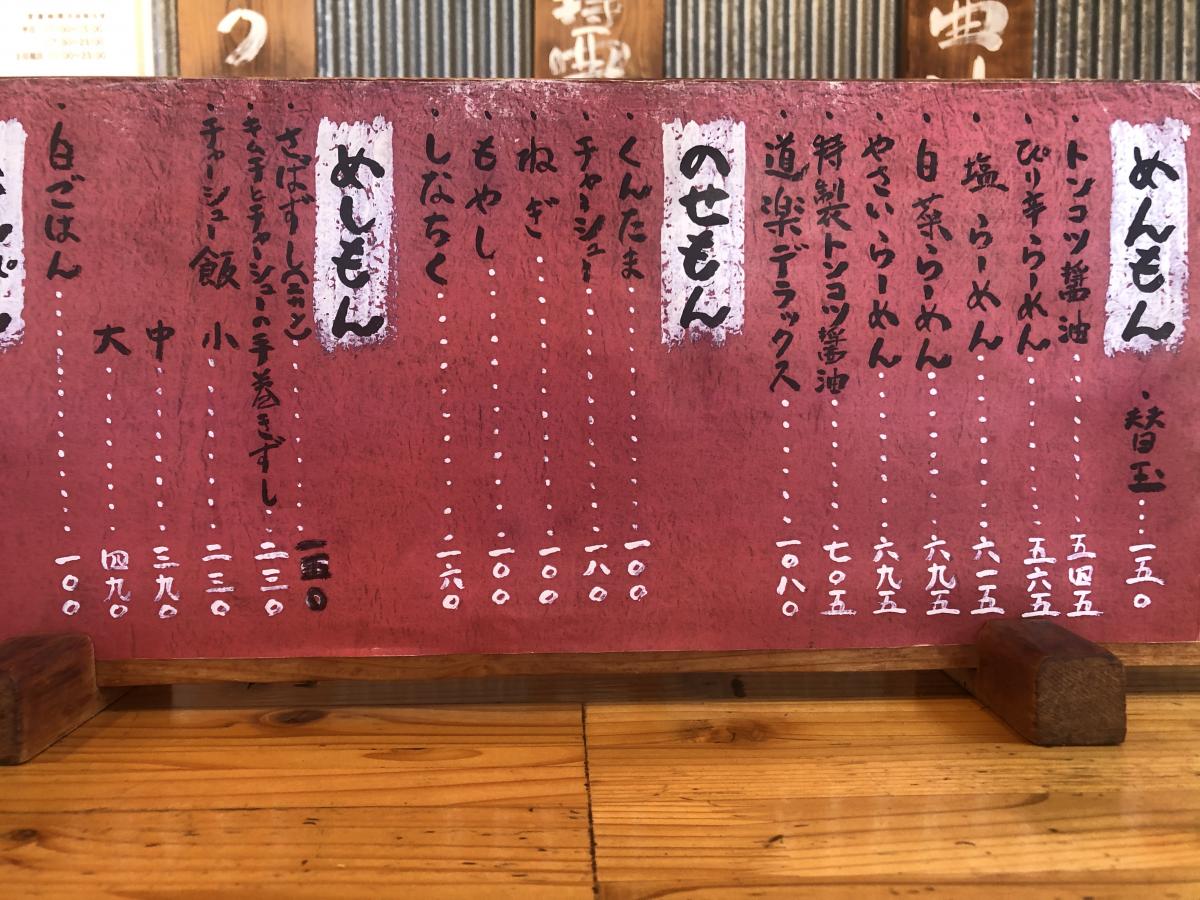 めんもん
・替玉……一五〇
・トンコツ醤油……五四五
・ぴり辛らーめん……五六五
・塩らーめん……六一五
・白菜らーめん……六九五
・やさいらーめん……六九五
・特製トンコツ醤油……七〇五
・道楽デラックス……一〇八〇
のせもん
・くんたま……一〇〇
・チャーシュー……一八〇
・ねぎ……一〇〇
・もやし……一〇〇
・しなちく……一六〇
めしもん
・さばずし(ニカン)……
・キムチとチャーシューの手巻きずし……二三〇
・チャーシュー飯 小……二三〇
中……三九〇
大……四九〇
・白ごはん……一〇〇